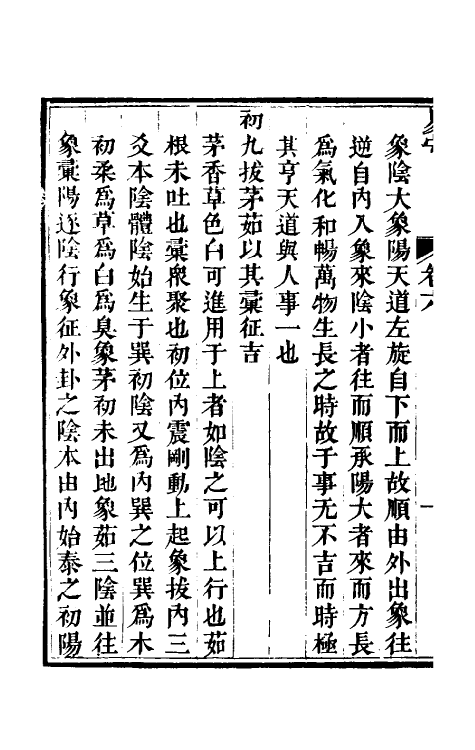 卷六
一
象陰大象陽天道左旋自下而上故順由外出象往
逆自內入象來陰小者往而順承陽大者來而方長
爲氣化和暢萬物生長之時故于事无不吉而時極
其亨天道與人事一也
初九拔茅茹以其彙征吉
茅香草色白可進用于上者如陰之可以上行也茹
根未吐也彙衆聚也初位內震剛動上起象拔內三
爻本陰體陰始生于巽初陰又爲內巽之位巽爲木
初柔爲草爲白爲臭象茅初未出地象茹三陰並往
象彙陽逐陰行象征外卦之陰本由內始泰之初陽